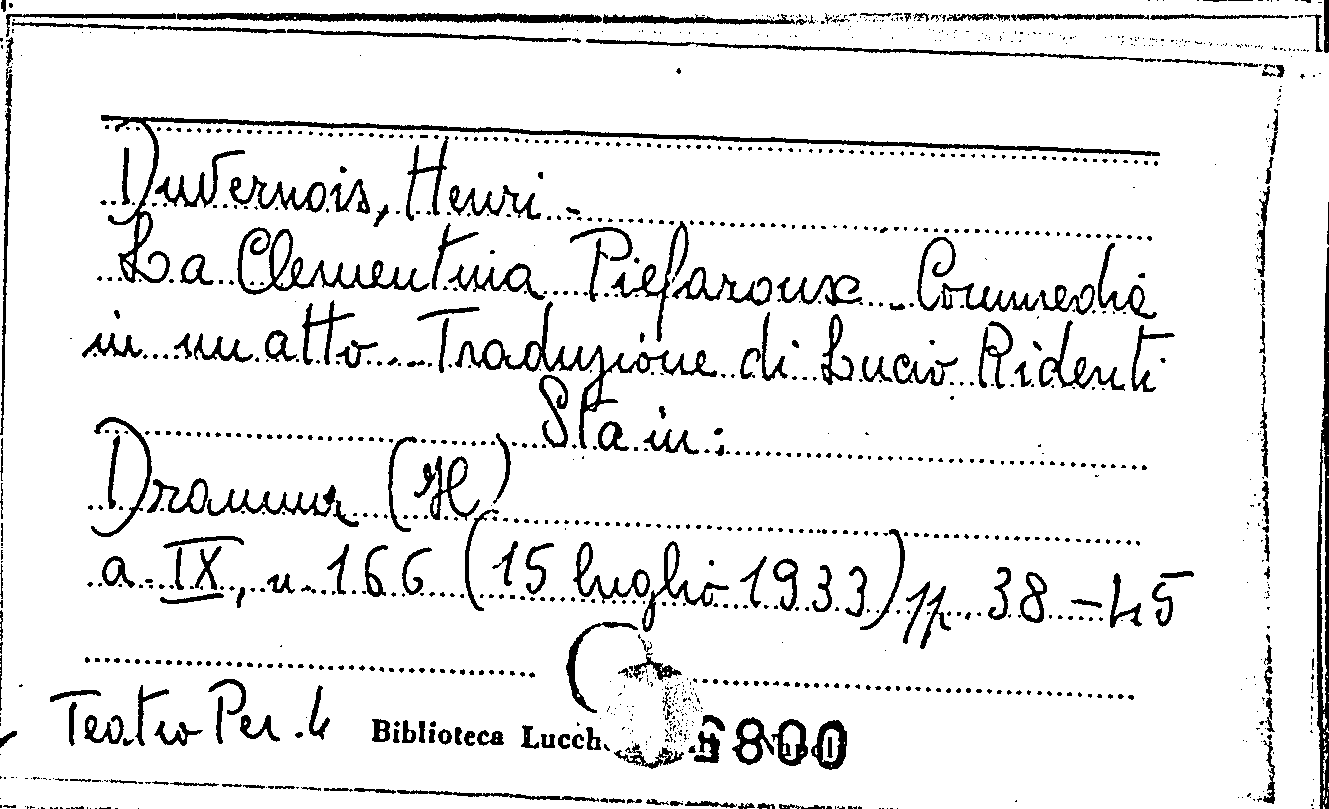 Duvernois, Henri -
La Clementina Piefaroux - Commedia
in un atto - Traduzione di Lucio Ridenti
Sta in:
Dramma (Il)
a. IX, n. 166 (15 luglio 1933) pp. 38-45
Teatro Per. 4 Biblioteca 6800